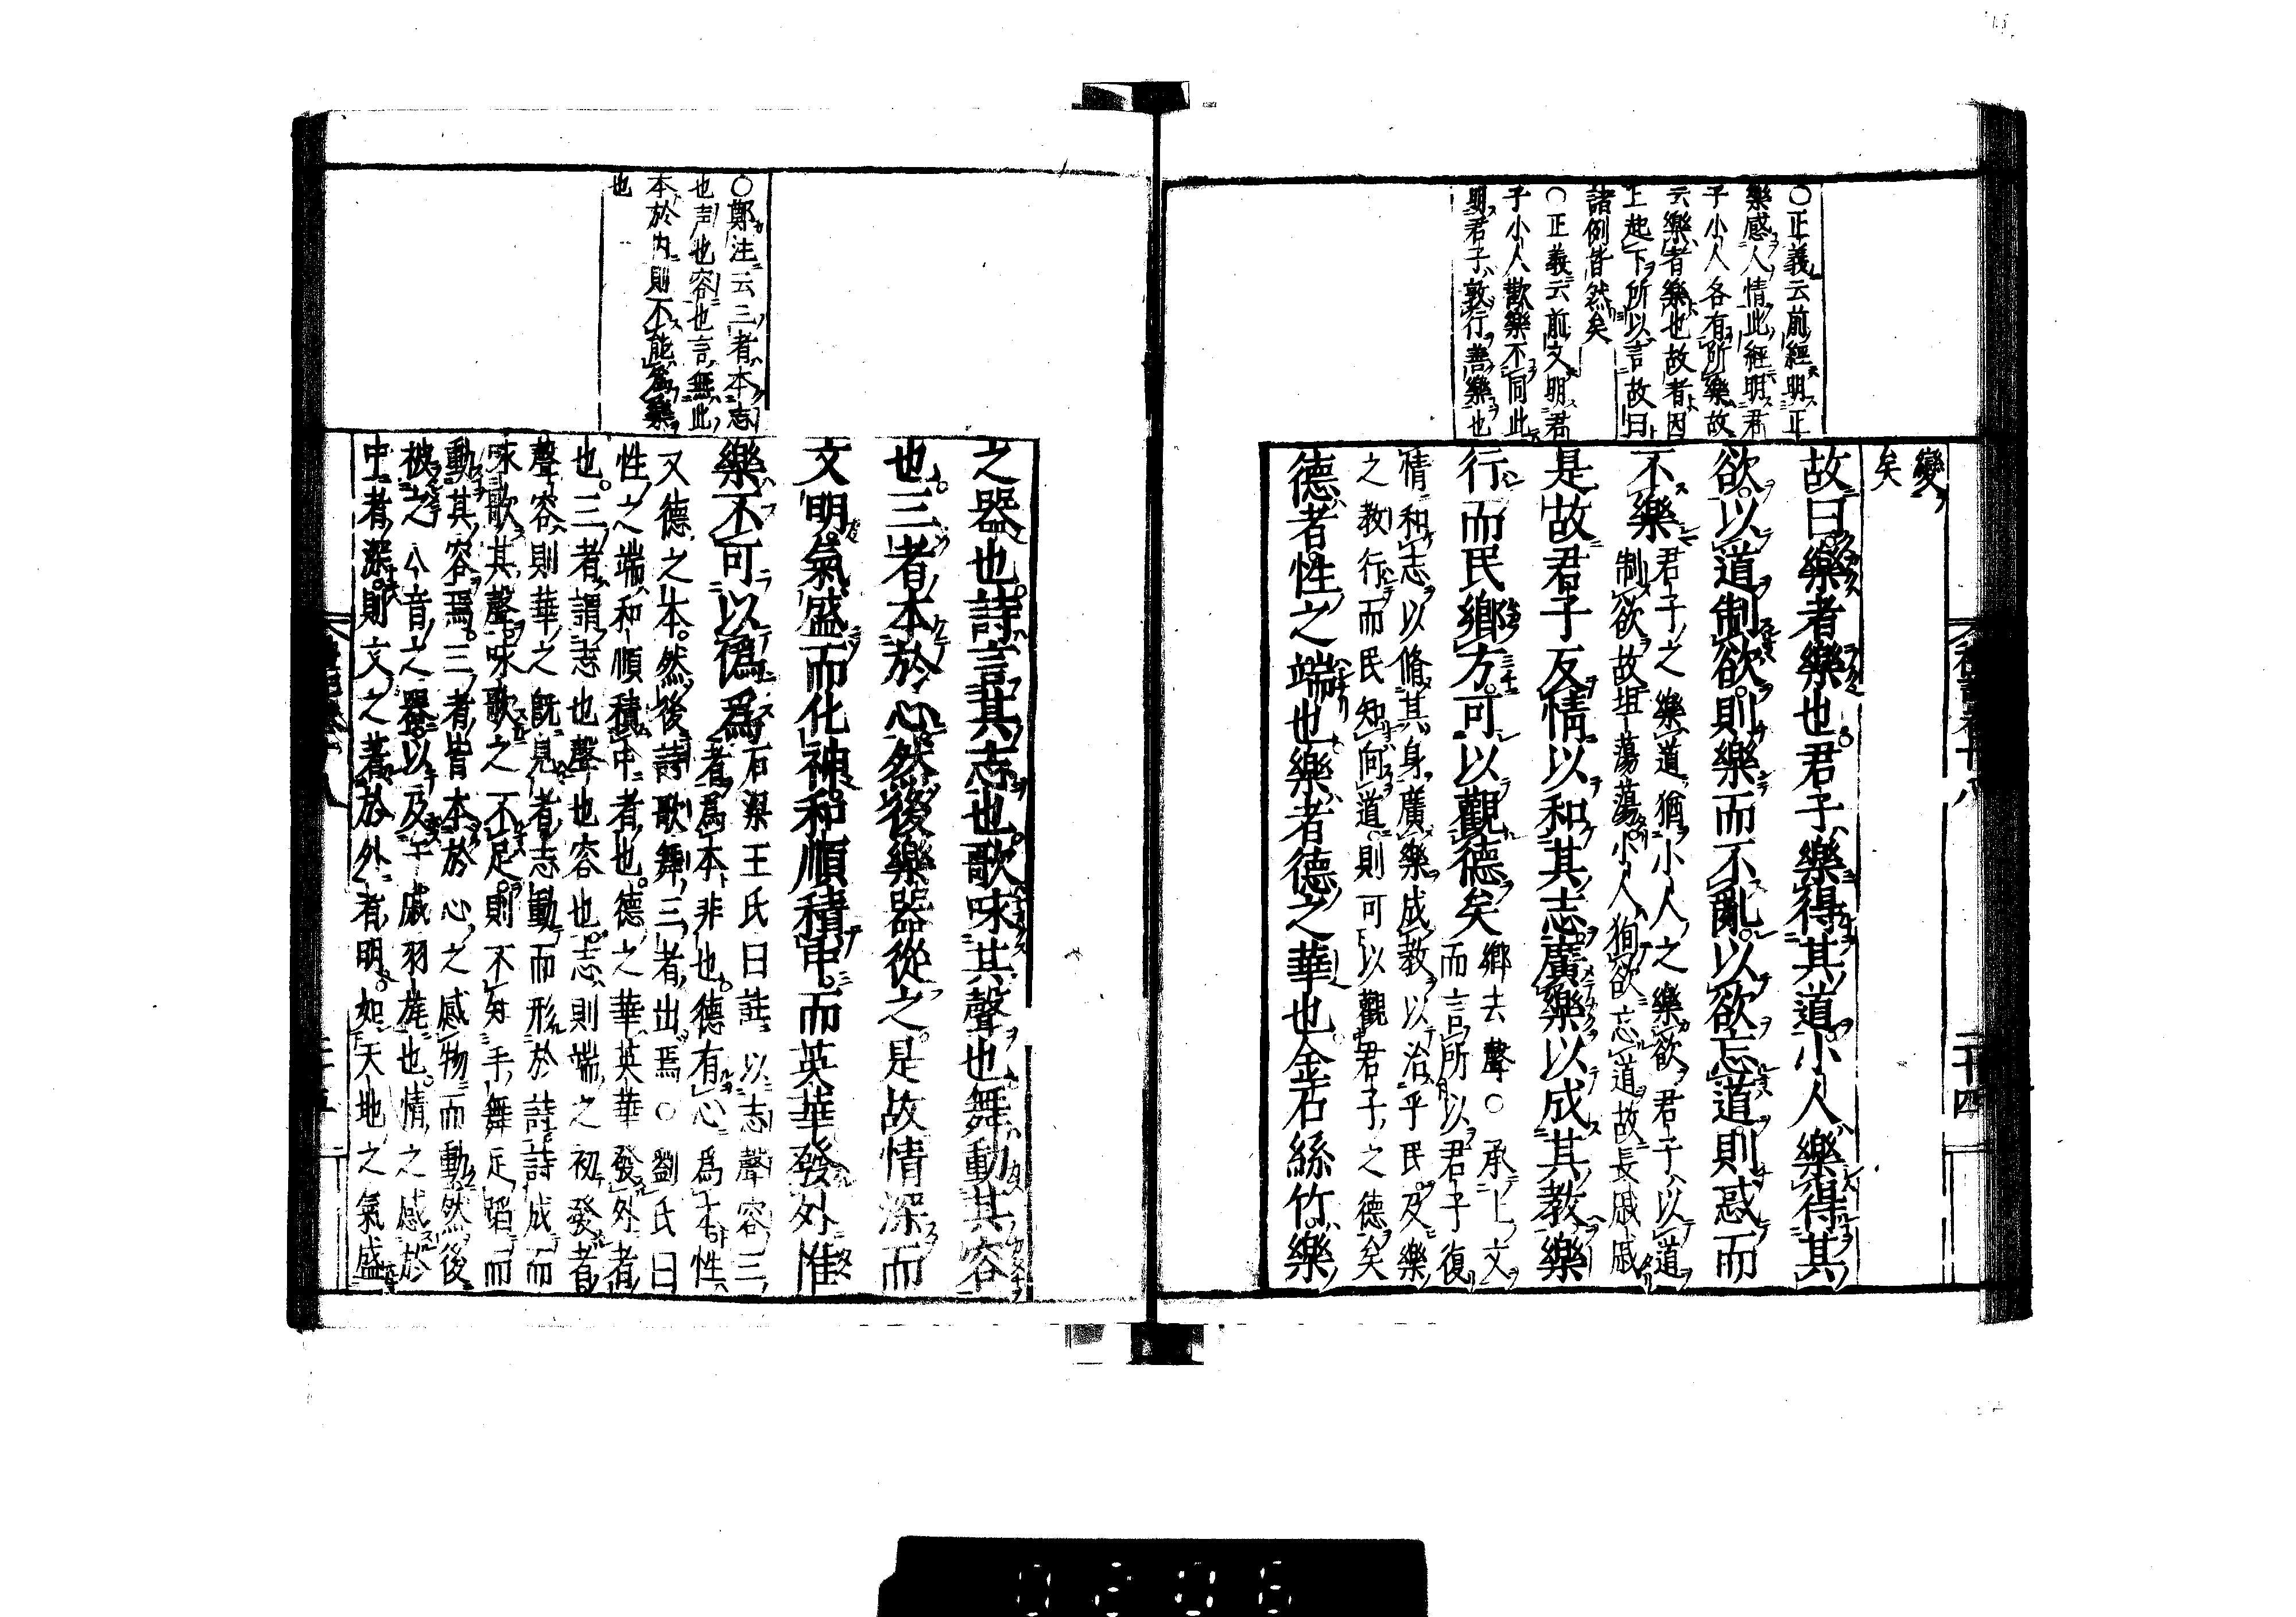 ○正義云前經明正
樂感人情此經明君
子小人各有所樂故
云樂者樂也故者因
上起下所以言故曰
諸例皆然矣
○正義云前文明君
子小人歡樂不同此
明君子敦行善樂也
變
矣
故曰樂者樂也君子樂得其道小人樂得其
欲以道制欲則樂而不亂以欲忘道則惑而
不樂
君子之樂道猶小人之樂欲君子以道
制欲故坦蕩蕩小人狥欲忘道故長戚戚
是故君子反情以和其志廣樂以成其教樂
行而民鄉方可以觀德矣
鄉去聲○承上文
而言所以君子復
情和志以脩其身廣樂成教以治乎民及樂
之教行而民知向道則可以觀君子之德矣
德者性之端也樂者德之華也金石絲竹樂
二十四
○鄭注云三者本志
也声也容也言無此
本於內則不能爲樂
也
之器也詩言其志也歌咏其聲也舞動其容
也三者本於心然後樂器從之是故情深而
文明氣盛而化神和順積中而英華發外惟
樂不可以僞爲
石梁王氏曰註以志聲容三
者爲本非也德有心爲本性
又德之本然後詩歌舞三者出焉○劉氏曰
性之端和順積中者也德之華英華發外者
也三者謂志也聲也容也志則端之初發者
聲容則華之旣見者志動而形於詩詩成而
咏歌其聲咏歌之不足則不知手舞足蹈而
動其容焉三者皆本於心之感物而動然後
被之八音之器以及干戚羽旄也情之感於
中者深則文之著於外者明如天地之氣盛
0206